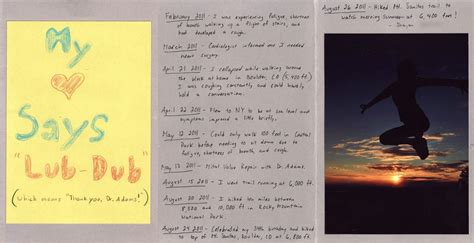 My
Says
"Lub-Dub"
(which means "Thank you, Dr. Adams!")
February 2011 - I was experiencing fatigue, shortness
of breath walking up a flight of stairs, and
had developed a cough.
March 2011 - Cardiologist informed me I needed
heart surgery.
April 21 2011 - I collapsed while walking around
the block at home in Boulder, CO (5,400 ft).
I was coughing constantly and could barely
hold a conversation.
April 22 2011 - Flew to NY to be at sea level and
symptoms improved a little briefly.
May 12 2011 - Could only walk 100 feet in Central
Park before needing to sit down due to
fatigue, shortness of breath and cough.
May 13 2011 - Mitral Valve Repair with Dr. Adams.
August 15 2011 - I went trail running at 6,000 ft.
August 20 2011 - I hiked between
8,500 and 10,000 ft in Rocky Mountain
National Park
August 24 2011 - Celebrated my 34th birthday and hiked
to top of Mt. Sanitas, Boulder, CO at 6,800 ft.
August 26 2011 - Hiked Mt. Sanitas trail to
watch morning sunrise at 6,400 feet!